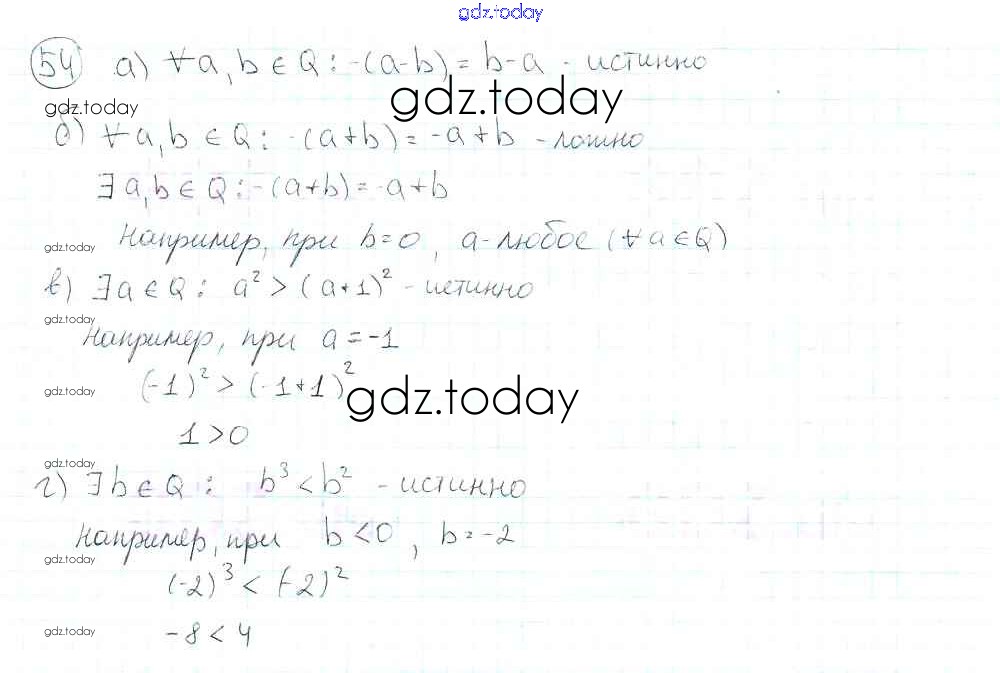 gdz.today
54 а) ∀a, b ∈ Q : -(a-b) = b-a - истинно
gdz.today
gdz.today
б) ∀a, b ∈ Q : -(a+b) = -a+b - ложно
∃a, b ∈ Q : -(a+b) = -a+b
gdz.today
Например, при b=0, a-любое (∀a∈Q)
в) ∃a ∈ Q : a² > (a+1)² - истинно
gdz.today
Например, при a = -1
(-1)² > (-1+1)²
gdz.today
gdz.today
1>0
gdz.today
г) ∃b ∈ Q : b³ < b² - истинно
Например, при b<0, b=-2
gdz.today
(-2)³ < (-2)²
gdz.today
-8 < 4